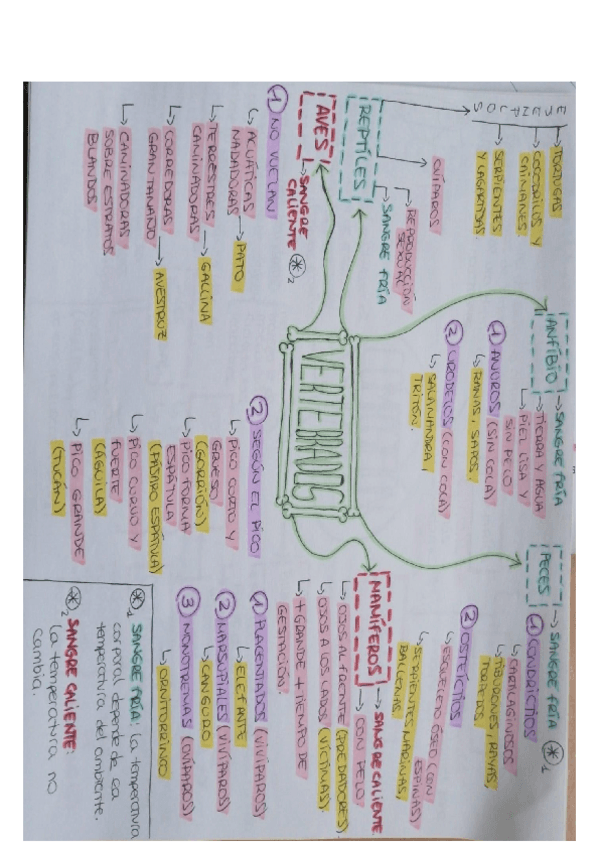 VERTEBRADOS
ANFÍBIO
→ SANGRE FRÍA
↳ TIERRA Y AGUA
↳ PIEL LISA Y
SIN PELO
① ANUROS (SIN COLA)
↳ RANAS, SAPOS.
② URODELOS (CON COLA)
↳ SALAMANDRA,
TRITÓN.
PECES
→ SANGRE FRÍA *1
① CONDRICTIOS
↳ CARTILAGINOSOS
↳ TIBURONES, RAYAS,
TORPEDOS
② OSTEÍCTIOS
↳ ESQUELETO ÓSEO (CON
ESPINAS)
↳ SERPIENTES MARINAS,
BALLENAS
REPTÍLES
↳ SANGRE FRÍA
↳ REPRODUCCIÓN
SEXUAL
OVÍPAROS
TORTUGAS
COCODRILOS Y
CAIMANES.
SERPIENTES
Y LAGARTIJAS.
AVES
→ SANGRE
CALIENTE *2
① NO VUELAN
↳ ACUÁTICAS
NADADORAS → PATO
↳ TERRESTRES
CAMINADORAS → GALLINA
↳ CORREDORAS
GRAN TAMAÑO → AVESTRUZ
↳ CAMINADORAS
SOBRE ESTRATOS
BLANDOS
② SEGÚN EL PICO
↳ PICO CORTO Y
GRUESO
(GORRIÓN)
↳ PICO FORMA
ESPÁTULA
(PÁJARO ESPÁTULA)
↳ PICO CURVO Y
FUERTE
(ÁGUILA)
↳ PICO GRANDE
(TUCÁN)
MAMÍFEROS
→ SANGRE CALIENTE
↳ CON PELO
↳ OJOS AL FRENTE (DEPREDADORES)
↳ OJOS A LOS LADOS (VÍCTIMAS)
↳ + GRANDE + TIEMPO DE
GESTACIÓN.
① PLACENTADOS (VIVÍPAROS)
↳ ELEFANTE
② MARSUPIALES (VIVÍPAROS)
↳ CANGURO
③ MONOTREMAS (OVÍPAROS)
↳ ORNITORRINCO
*1 SANGRE FRÍA: la temperatura
corporal depende de la
temperatura del ambiente.
*2 SANGRE CALIENTE:
la temperatura no
cambia.